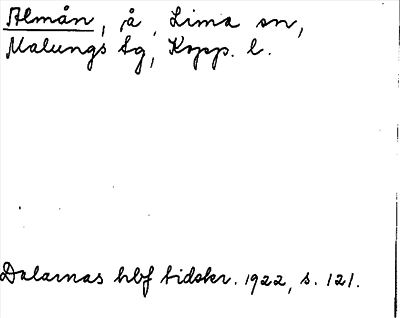 Almån, å, Lima sn,
Malungs tg, Kopp. l.
Dalarnas hbf tidskr. 1922, s. 121.